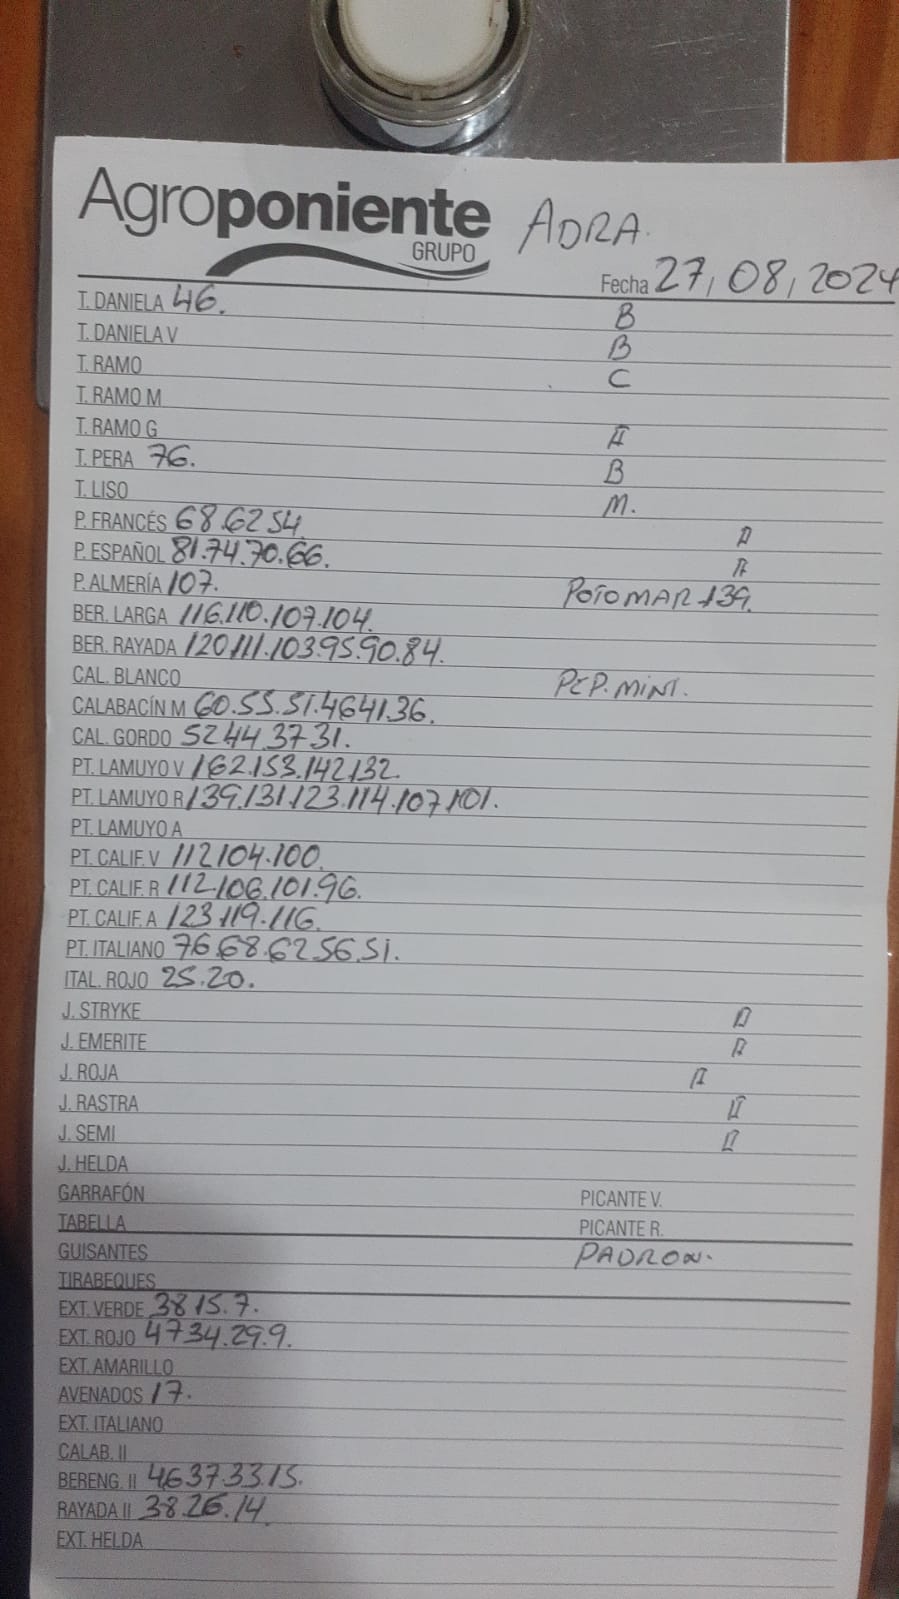 Agroponiente ADRA.
GRUPO
Fecha 27, 08, 2024
T. DANIELA 46. B
T. DANIELA V B
T. RAMO C
T. RAMO M
T. RAMO G A
T. PERA 76. B
T. LISO M.
P. FRANCÉS 68.62 54. A
P. ESPAÑOL 81.74.70.66. A
P. ALMERÍA 107. POTOMAR 139.
BER. LARGA 116.110.107.104.
BER. RAYADA 120.111.103.95.90.84.
CAL. BLANCO PEP. MINI.
CALABACÍN M 60.55.51.46 41.36.
CAL. GORDO 52 44.37 31.
PT. LAMUYO V 162.153.142.132.
PT. LAMUYO R 139.131.123.114.107.101.
PT. LAMUYO A
PT. CALIF. V 112 104.100.
PT. CALIF. R 112.106.101.96.
PT. CALIF. A 123 119.116.
PT. ITALIANO 76.68.62 56.51.
ITAL. ROJO 25.20.
J. STRYKE A
J. EMERITE A
J. ROJA A
J. RASTRA A
J. SEMI A
J. HELDA
GARRAFÓN PICANTE V.
TABELLA PICANTE R.
GUISANTES PADRON.
TIRABEQUES
EXT. VERDE 38 15.7.
EXT. ROJO 47 34.29.9.
EXT. AMARILLO
AVENADOS 17.
EXT. ITALIANO
CALAB. II
BERENG. II 46 37.33.15.
RAYADA II 38.26.14.
EXT. HELDA